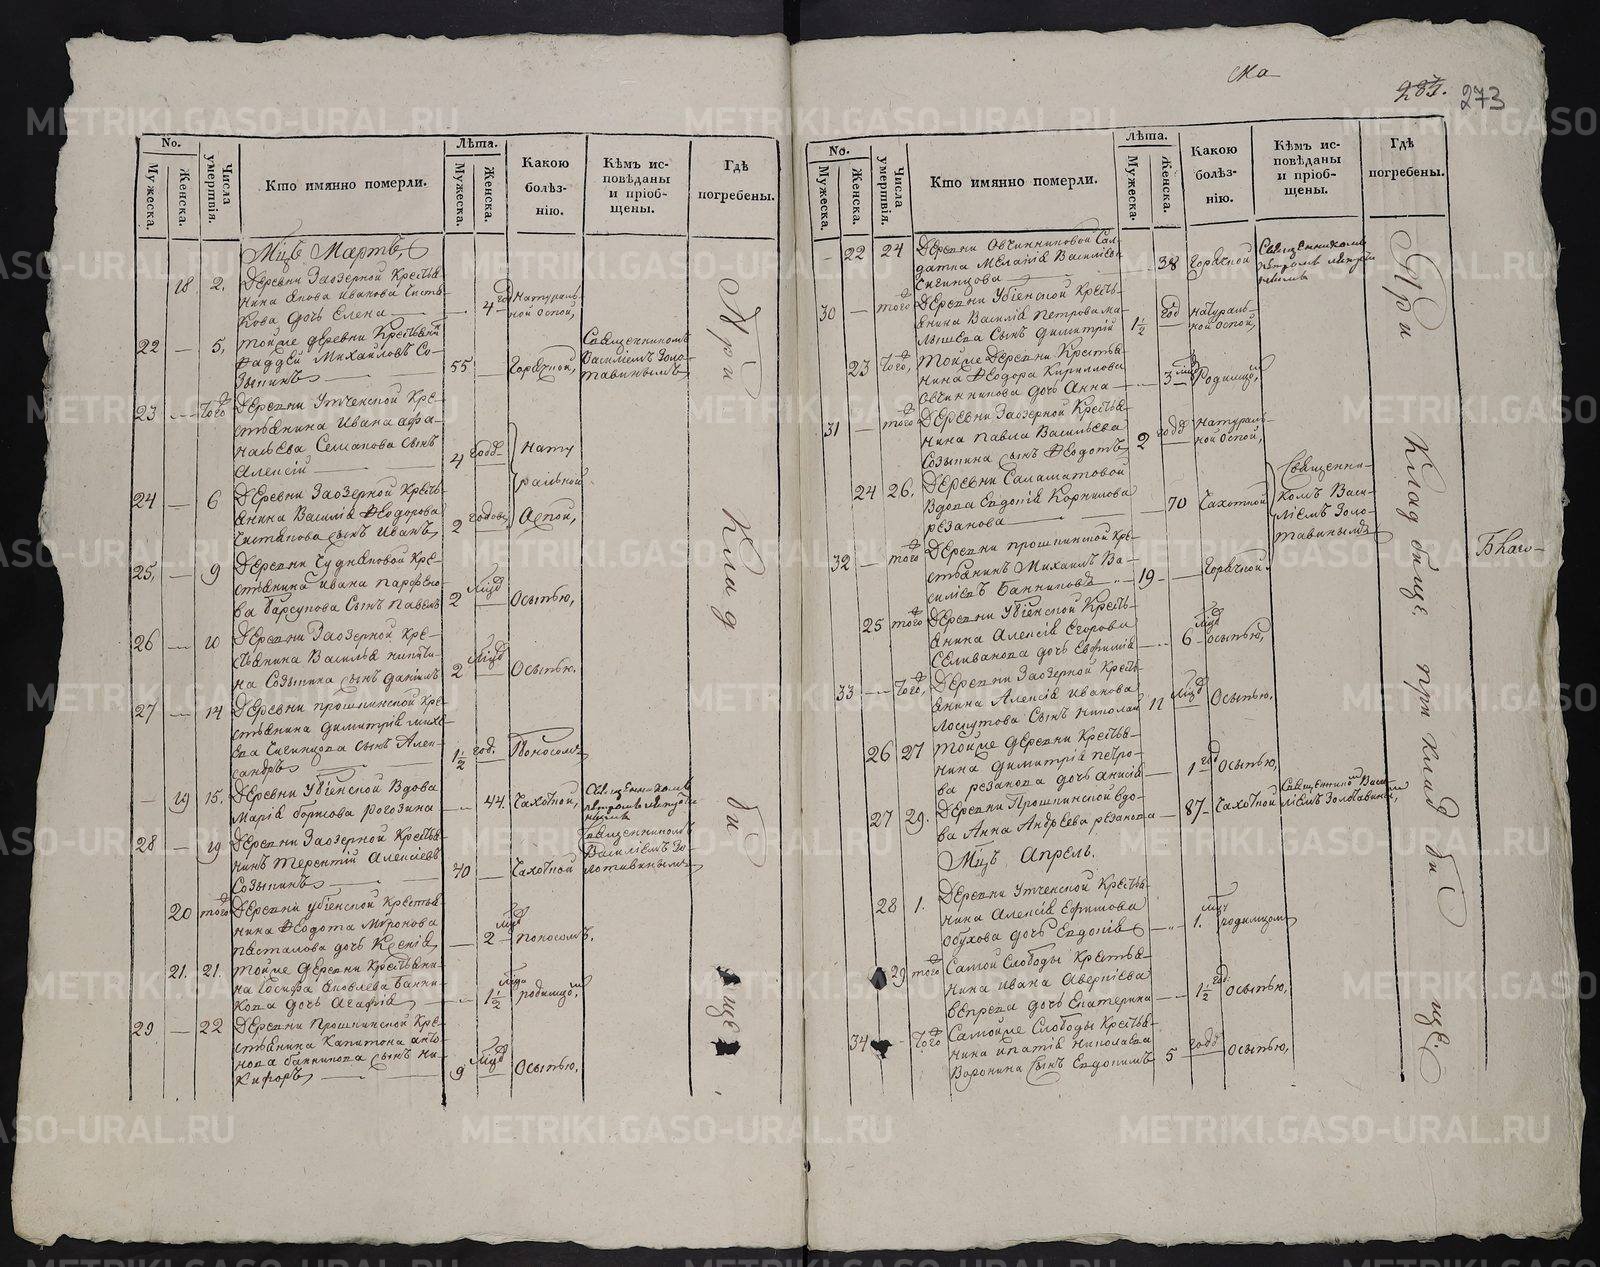 ма
287. 273
No.
Мужеска.
Женска.
Числа умертвія.
Кто имянно померли.
Лѣта.
Мужеска.
Женска.
Какою болѣз-нію.
Кѣмъ ис-повѣданы и пріоб-щены.
Гдѣ погребены.
Мцъ Мартъ,
18 2. Деревни Заозерной Кресть-
нина Якова Иванова Чистя-
кова дочь Елена 4 год Натураль-
ной оспой,
22 — 5, тойже деревни Крестьянинъ
Фаддей Михайловъ Со-
зыкинъ 55 — Горячкой, Священникомъ
Василіемъ Золо-
тавинымъ
23 — того Деревни Утченской Кре-
стьянина Ивана Афа-
насьева Семакова сынъ
Алексій 4 годъ Нату
24 — 6 Деревни Заозерной Кресть-
янина Василія Ѳеодорова
Чистякова сынъ Иванъ 2 ральной
Аспой,
25, — 9
стьянина Ивана Парфено-
ва Барсукова Сынъ Павелъ 2 мцд Осыпью,
26 — 10 Деревни Заозерной Кре-
стьянина Василья Никити-
на Созыкина сынъ Даніилъ 2 Мцд Осыпью.
27 — 14 Деревни прошкинской Кре-
стьянина Димитрія Михе-
ева Сычинцова сынъ Алек-
сандръ 1 1/2 год. Поносомъ
— 19 15. Деревни Убіенской Вдова
Марія Борисова Рогозина 44. Чахоткой, Священникомъ
28 — 19 Деревни Заозерной Крестья-
нинъ Терентій Алексіевъ
Созыкинъ 70 — Чахоткой Священникомъ
Василіемъ Зо-
лотавинымъ
20 того Деревни Убіенской Крестья-
нина Ѳеодота Миронова
дочь Ксенія — 2 мцд поносомъ.
21. 21. тойже деревни Крестьяни-
на Іосифа Яковлева Банни-
кова дочь Агафія 1 1/2 родимцомъ,
29 — 22 Деревни Прошкинской Кре-
стьянина Капитона Анто-
нова Банникова сынъ Ни-
кифоръ 9 Мцд Осыпью.
При Кладбище
No.
Мужеска.
Женска.
Числа умертвія.
Кто имянно померли.
Лѣта.
Мужеска.
Женска.
Какою болѣз-нію.
Кѣмъ ис-повѣданы и пріоб-щены.
Гдѣ погребены.
— 22 24 Деревни Овчинниковой Сол-
датка Меланія Василіева
Сычинцова 38 горячкой Священникомъ
30 — того Деревни Убіенской Кресть-
янина Василія Петрова Ма-
лышева Сынъ Димитрій 1 1/2 год натураль-
ной оспой,
23 того, тойже деревни Крестья-
нина Ѳеодора Кириллова
Овчинникова дочь Анна 3 Родимцо,
31 — того Деревни Заозерной Крестья-
нина Павла Васильева
Созыкина сынъ Ѳеодотъ 2 годъ натураль-
ной оспой,
24 26. Деревни Саламатовой
Вдова Евдокія Корнилова
Рѣзанова 70 Чахоткой Священни-
комъ Васи-
ліемъ Золо-
тавинымъ
32 — того Деревни прошкинской Кре-
стьянинъ Михаилъ Ва-
силіевъ Банниковъ 19 — Горячкой.
25 того Деревни Убіенской Кресть-
янина Алексія Егорова
Селиванова дочь Евфимія 6 мцд осыпью,
33 — того, Деревни Заозерной Кресть-
янина Алексія Иванова
Лоскутова Сынъ Николай 11 Мцд Осыпью.
26 27 тойже деревни Крестья-
нина Димитрія Петро-
ва Рѣзанова дочь Анисія — 1 год Осыпью,
27 29. Деревни Прошкинской вдо-
ва Анна Андреева Рѣзанова — 87 Чахоткой Священникомъ Васи-
ліемъ Золотавинымъ,
Мцъ Апрель.
28 1. Деревни Утченской Крестья-
нина Алексія Ефимова
Обухова дочь Евдокія 1. мцъ родимцомъ
29 того Самой Слободы Крестья-
нина Ивана Аверкіева
Вепрева дочь Екатерина 1 1/2 год осыпью,
34 — того Самойже Слободы Крестья-
нина Ипатія Николаева
Воронина Сынъ Евдокимъ 5 годъ осыпью,
При Кладбище при кладбище.
Благо-